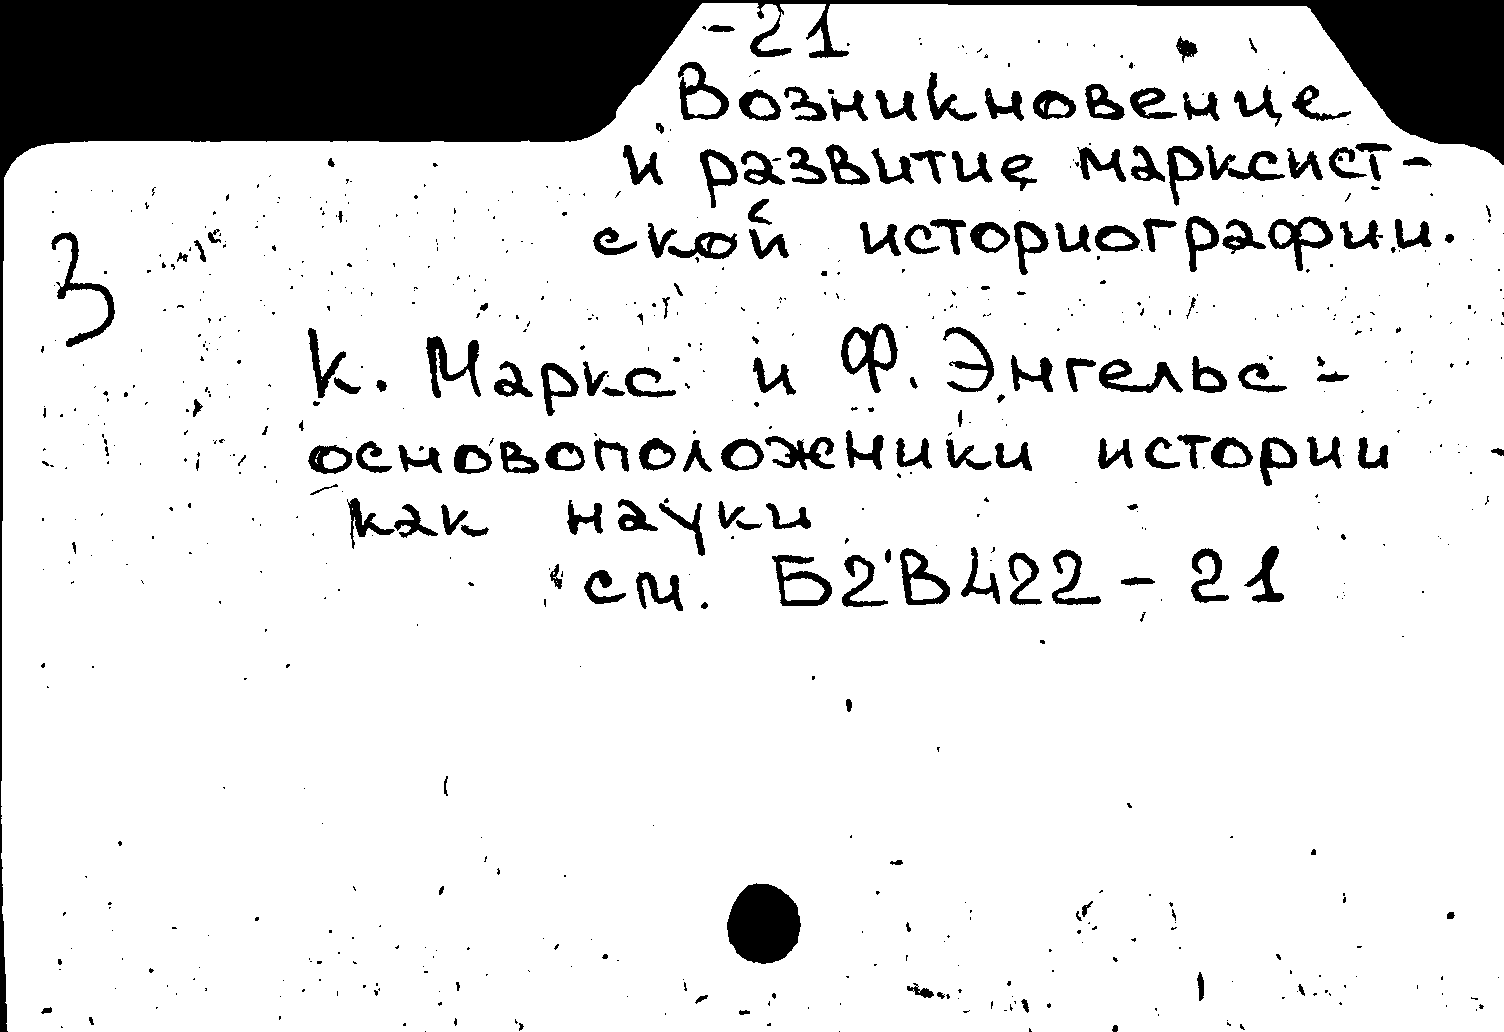 -21
Возникновение
и развитие марксист-
ской историографии.
3
К. Маркс и Ф. Энгельс -
основоположники истории
как науки
см. Б2'В422-21